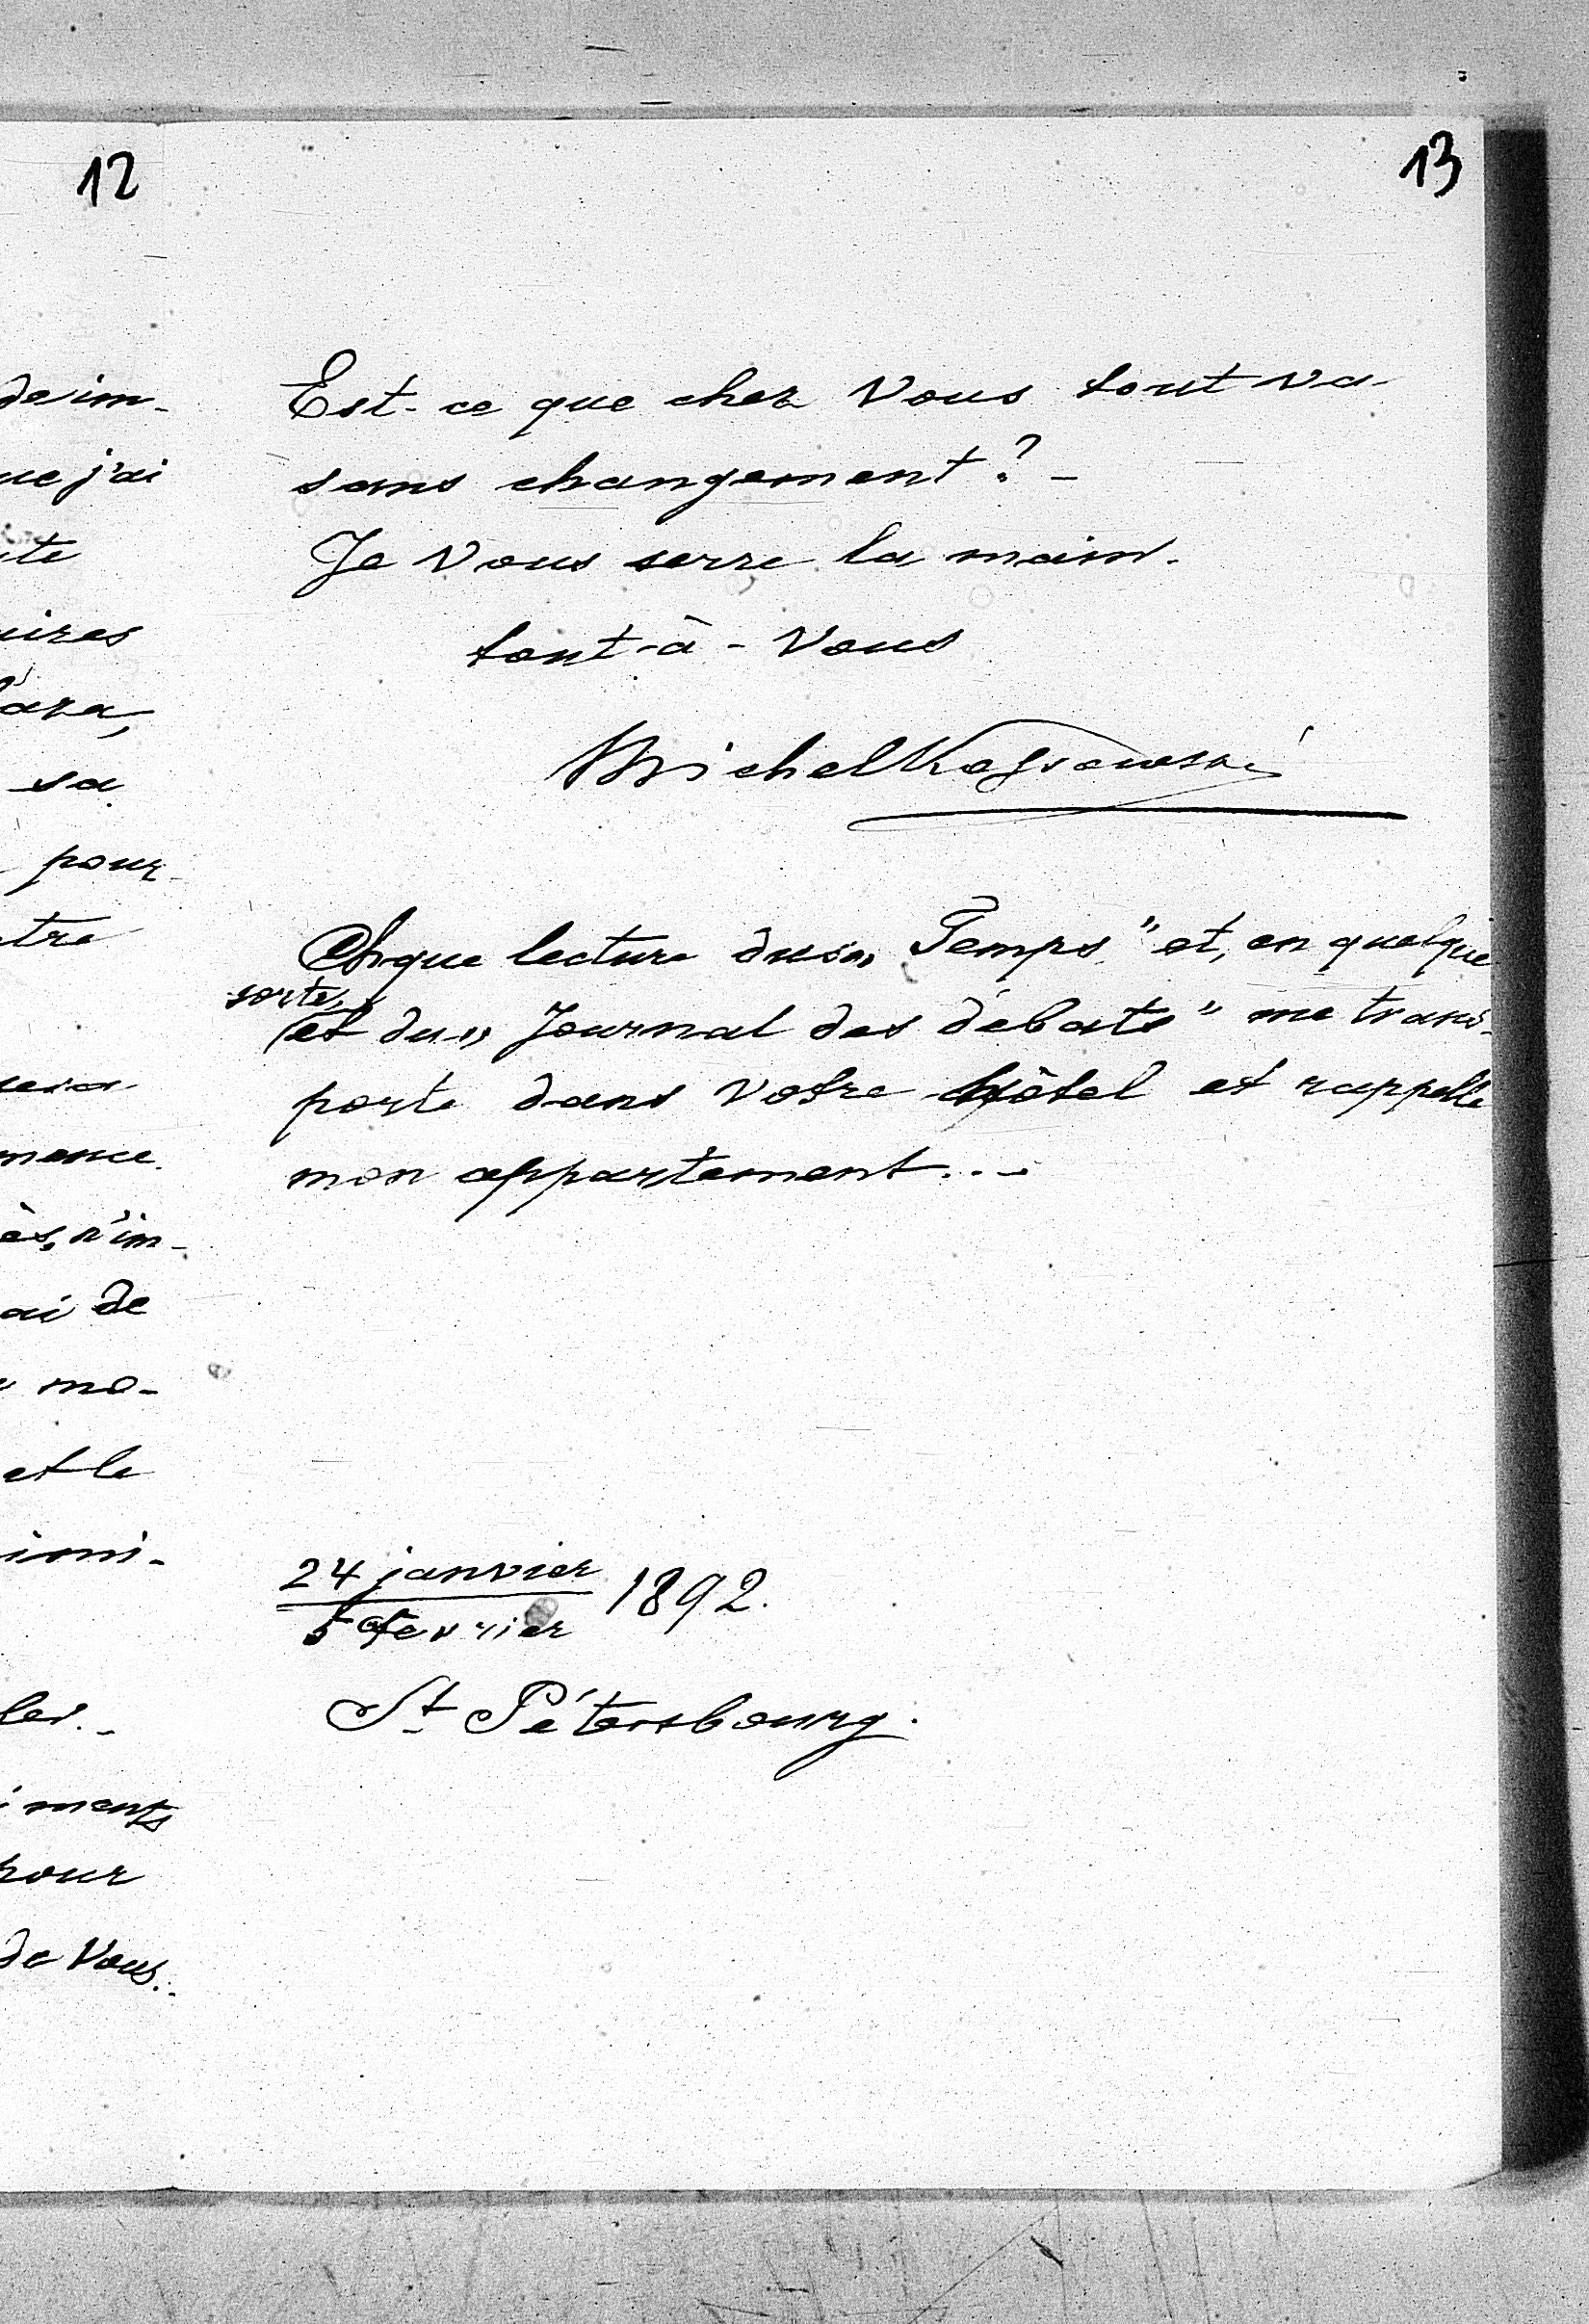 12
de im-
ue j'ai
ute
aires
sa
pour-
tre
mence
ès, n'im-
ai de
mo-
et le
imi-
les.-
iments
pour
de Vous.-
13
Est-ce que chez Vous tout va
sans changement? -
Je Vous serre la main.
tout-à-Vous
Michel
Chque lecture du „Temps" et, en quelque
sorte,
et du „Journal des débats" me trans-
porte dans Votre hôtel et rappelle
mon appartement...
24 janvier
5 fevrier 1892.
St Pétersbourg.